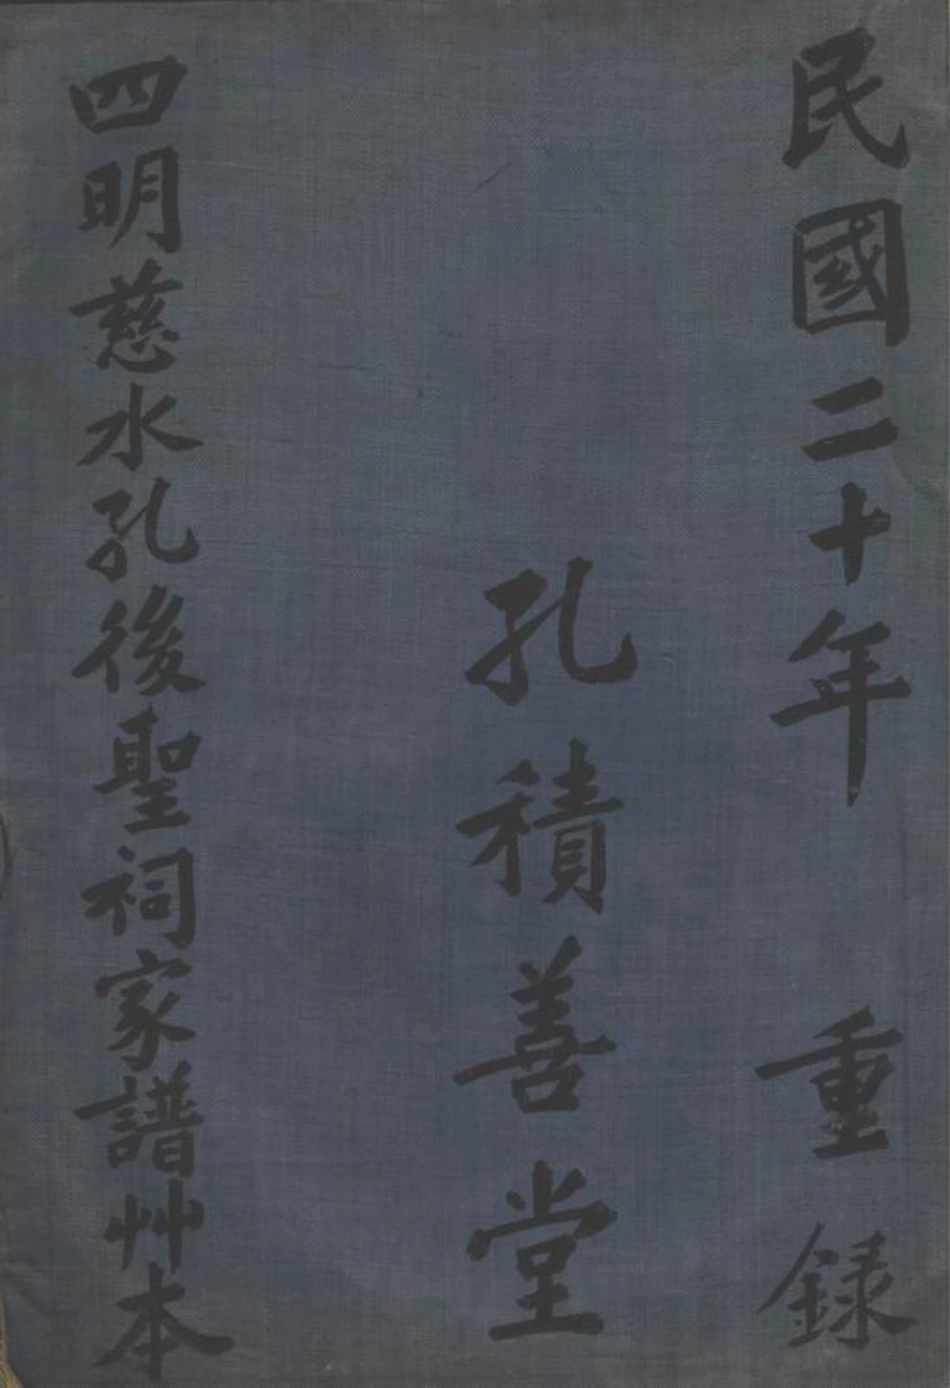 民國二十年 重録
孔積善堂
四明慈水孔後聖祠家譜艸本